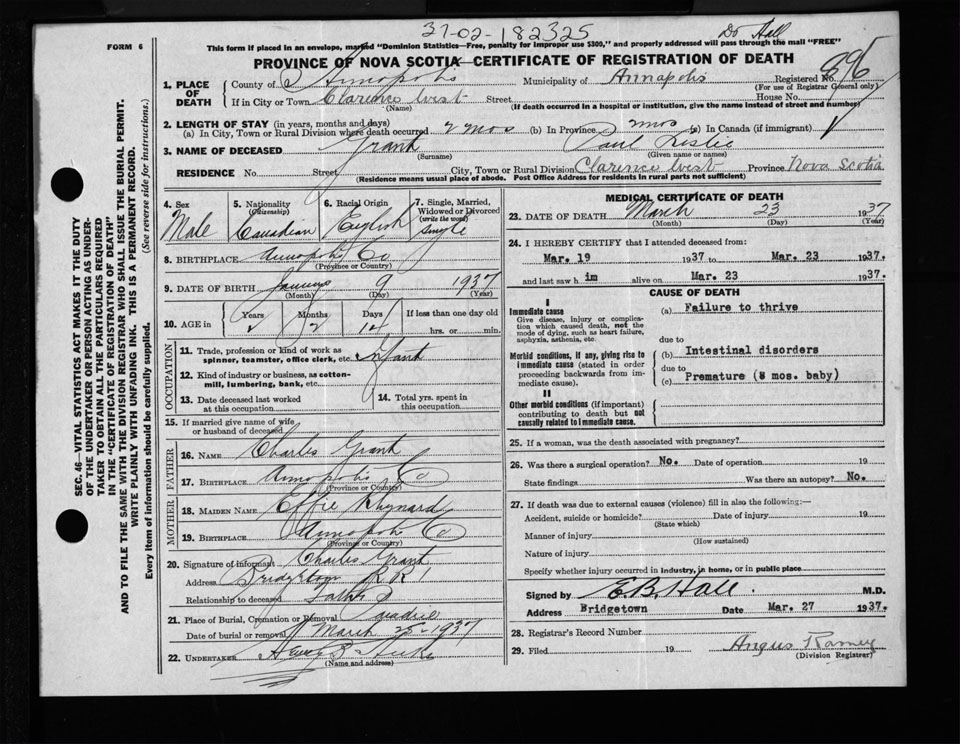 37-02-182325
Dr Hall
FORM 6
This form if placed in an envelope, marked "Dominion Statistics—Free, penalty for improper use $300," and properly addressed will pass through the mail "FREE"
PROVINCE OF NOVA SCOTIA—CERTIFICATE OF REGISTRATION OF DEATH
896
1. PLACE OF DEATH
County of Annapolis Municipality of Annapolis Registered No.
(For use of Registrar General only)
If in City or Town Clarence West Street House No.
(Name) (If death occurred in a hospital or institution, give the name instead of street and number)
2. LENGTH OF STAY (in years, months and days)
(a) In City, Town or Rural Division where death occurred 2 mos (b) In Province 2 mos (c) In Canada (if immigrant)
3. NAME OF DECEASED Grant Paul Leslie
(Surname) (Given name or names)
RESIDENCE No. Street City, Town or Rural Division Clarence West Province Nova Scotia
(Residence means usual place of abode. Post Office Address for residents in rural parts not sufficient)
SEC. 46—VITAL STATISTICS ACT MAKES IT THE DUTY
OF THE UNDERTAKER OR PERSON ACTING AS UNDER-
TAKER TO OBTAIN ALL THE PARTICULARS REQUIRED
IN THE "CERTIFICATE OF REGISTRATION OF DEATH"
AND TO FILE THE SAME WITH THE DIVISION REGISTRAR WHO SHALL ISSUE THE BURIAL PERMIT.
WRITE PLAINLY WITH UNFADING INK. THIS IS A PERMANENT RECORD.
Every item of information should be carefully supplied. (See reverse side for instructions.)
4. Sex 5. Nationality (Citizenship) 6. Racial Origin 7. Single, Married, Widowed or Divorced (write the word)
Male Canadian English Single
8. BIRTHPLACE Annapolis Co
(Province or Country)
9. DATE OF BIRTH January 9 1937
(Month) (Day) (Year)
10. AGE in Years Months Days If less than one day old
2 14 hrs. or min.
OCCUPATION
11. Trade, profession or kind of work as spinner, teamster, office clerk, etc. Infant
12. Kind of industry or business, as cotton-mill, lumbering, bank, etc.
13. Date deceased last worked at this occupation 14. Total yrs. spent in this occupation
15. If married give name of wife or husband of deceased
FATHER
16. NAME Charles Grant
17. BIRTHPLACE Annapolis Co
(Province or Country)
MOTHER
18. MAIDEN NAME Effie Rhynard
19. BIRTHPLACE Annapolis Co
(Province or Country)
20. Signature of informant Charles Grant
Address Bridgetown R R 1
Relationship to deceased Father
21. Place of Burial, Cremation or Removal
Date of burial or removal March 25-1937
22. UNDERTAKER
(Name and address)
MEDICAL CERTIFICATE OF DEATH
23. DATE OF DEATH March 23 1937
(Month) (Day) (Year)
24. I HEREBY CERTIFY that I attended deceased from:
Mar. 19 1937 to Mar. 23 1937.
and last saw him alive on Mar. 23 1937.
CAUSE OF DEATH
I
Immediate cause
Give disease, injury or complication which caused death, not the mode of dying, such as heart failure, asphyxia, asthenia, etc.
(a) Failure to thrive
due to
Morbid conditions, if any, giving rise to immediate cause (stated in order proceeding backwards from immediate cause).
(b) Intestinal disorders
due to
(c) Premature (8 mos. baby)
II
Other morbid conditions (if important) contributing to death but not causally related to immediate cause.
25. If a woman, was the death associated with pregnancy?
26. Was there a surgical operation? No. Date of operation 19
State findings Was there an autopsy? No.
27. If death was due to external causes (violence) fill in also the following:—
Accident, suicide or homicide? Date of injury 19
(State which)
Manner of injury
(How sustained)
Nature of injury
Specify whether injury occurred in industry, in home, or in public place
Signed by E.B. Hall M.D.
Address Bridgetown Date Mar. 27 1937.
28. Registrar's Record Number
29. Filed 19 Angus Ramey
(Division Registrar)